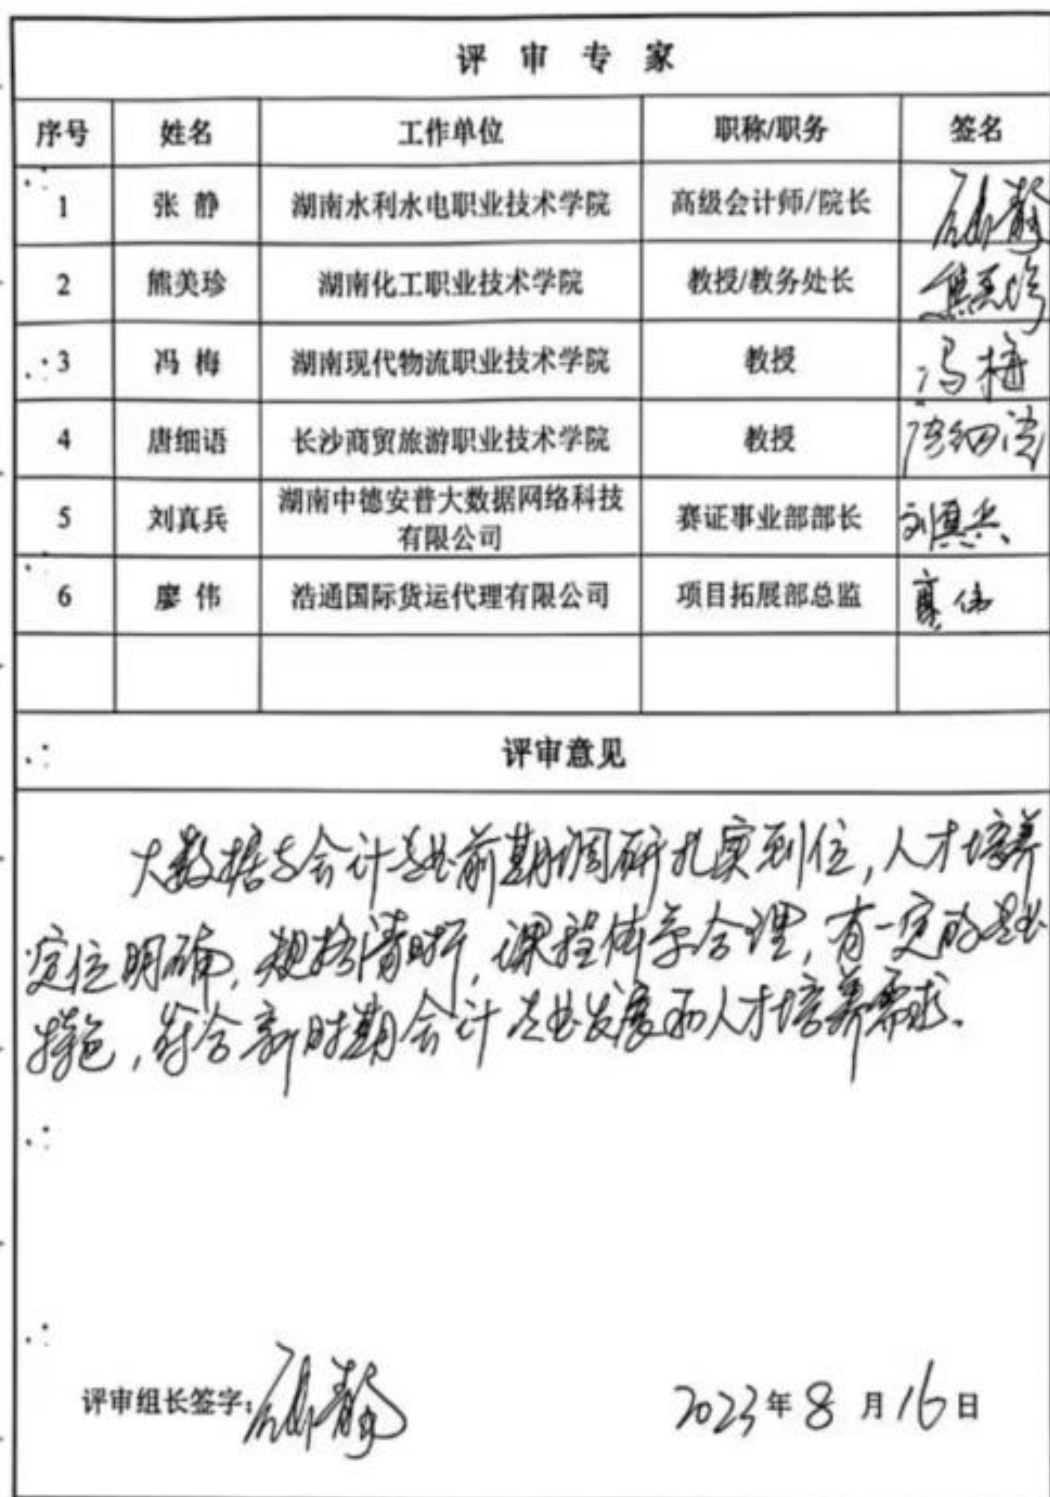 评 审 专 家
序号 姓名 工作单位 职称/职务 签名
1 张 静 湖南水利水电职业技术学院 高级会计师/院长
2 熊美珍 湖南化工职业技术学院 教授/教务处长 熊美珍
3 冯 梅 湖南现代物流职业技术学院 教授 冯梅
4 唐细语 长沙商贸旅游职业技术学院 教授 唐细语
5 刘真兵 湖南中德安普大数据网络科技 赛证事业部部长 刘真兵
有限公司
6 廖 伟 浩通国际货运代理有限公司 项目拓展部总监 廖伟
评审意见
大数据与会计专业前期调研扎实到位,人才培养
定位明确,规格清晰,课程体系合理,有一定的专业
特色,符合新时期会计专业发展和人才培养需求.
评审组长签字:
2023年8月16日